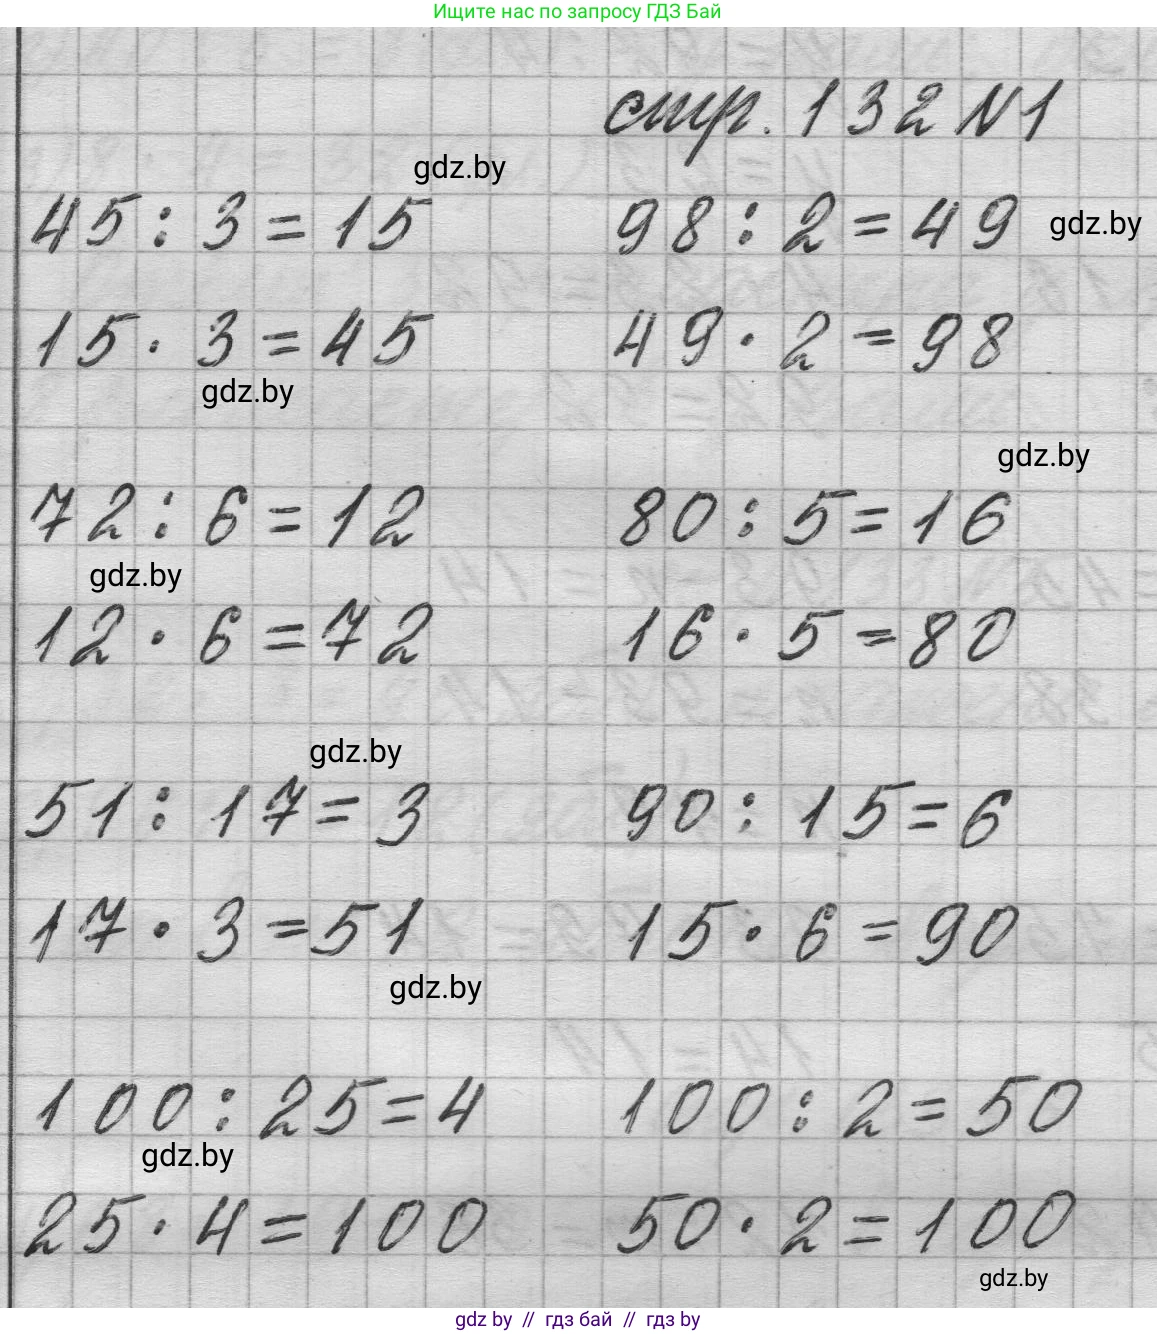 Ищите нас по запросу ГДЗ Бай
стр. 132 №1
gdz.by
45 : 3 = 15 98 : 2 = 49 gdz.by
15 · 3 = 45 49 · 2 = 98
gdz.by
gdz.by
72 : 6 = 12 80 : 5 = 16
gdz.by
12 · 6 = 72 16 · 5 = 80
gdz.by
51 : 17 = 3 90 : 15 = 6
17 · 3 = 51 15 · 6 = 90
gdz.by
100 : 25 = 4 100 : 2 = 50
gdz.by
25 · 4 = 100 50 · 2 = 100
gdz.by
gdz by // гдз бай // гдз by